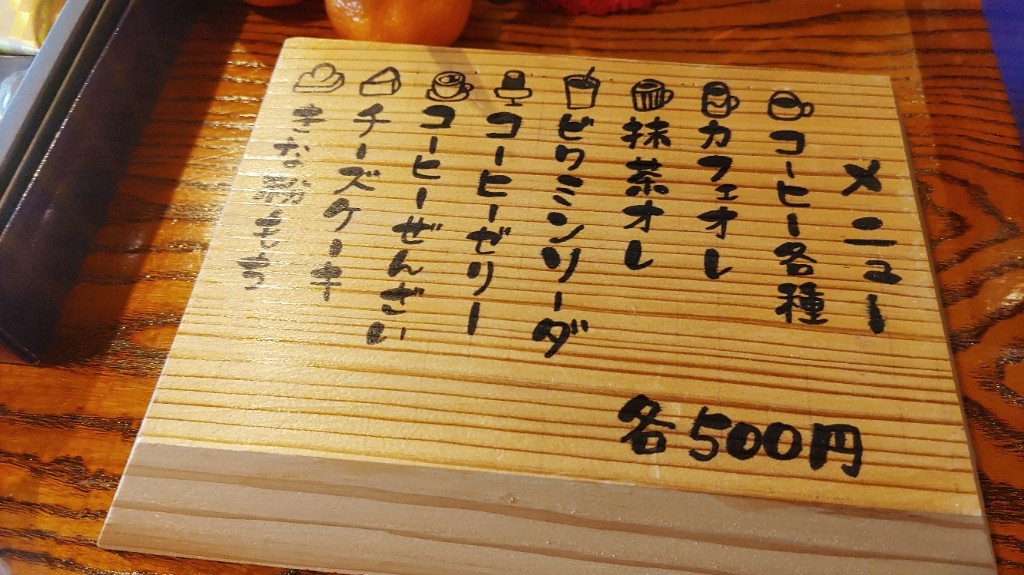 メニュー
コーヒー各種
カフェオレ
抹茶オレ
ビタミンソーダ
コーヒーゼリー
コーヒーぜんざい
チーズケーキ
きな粉もち
各500円